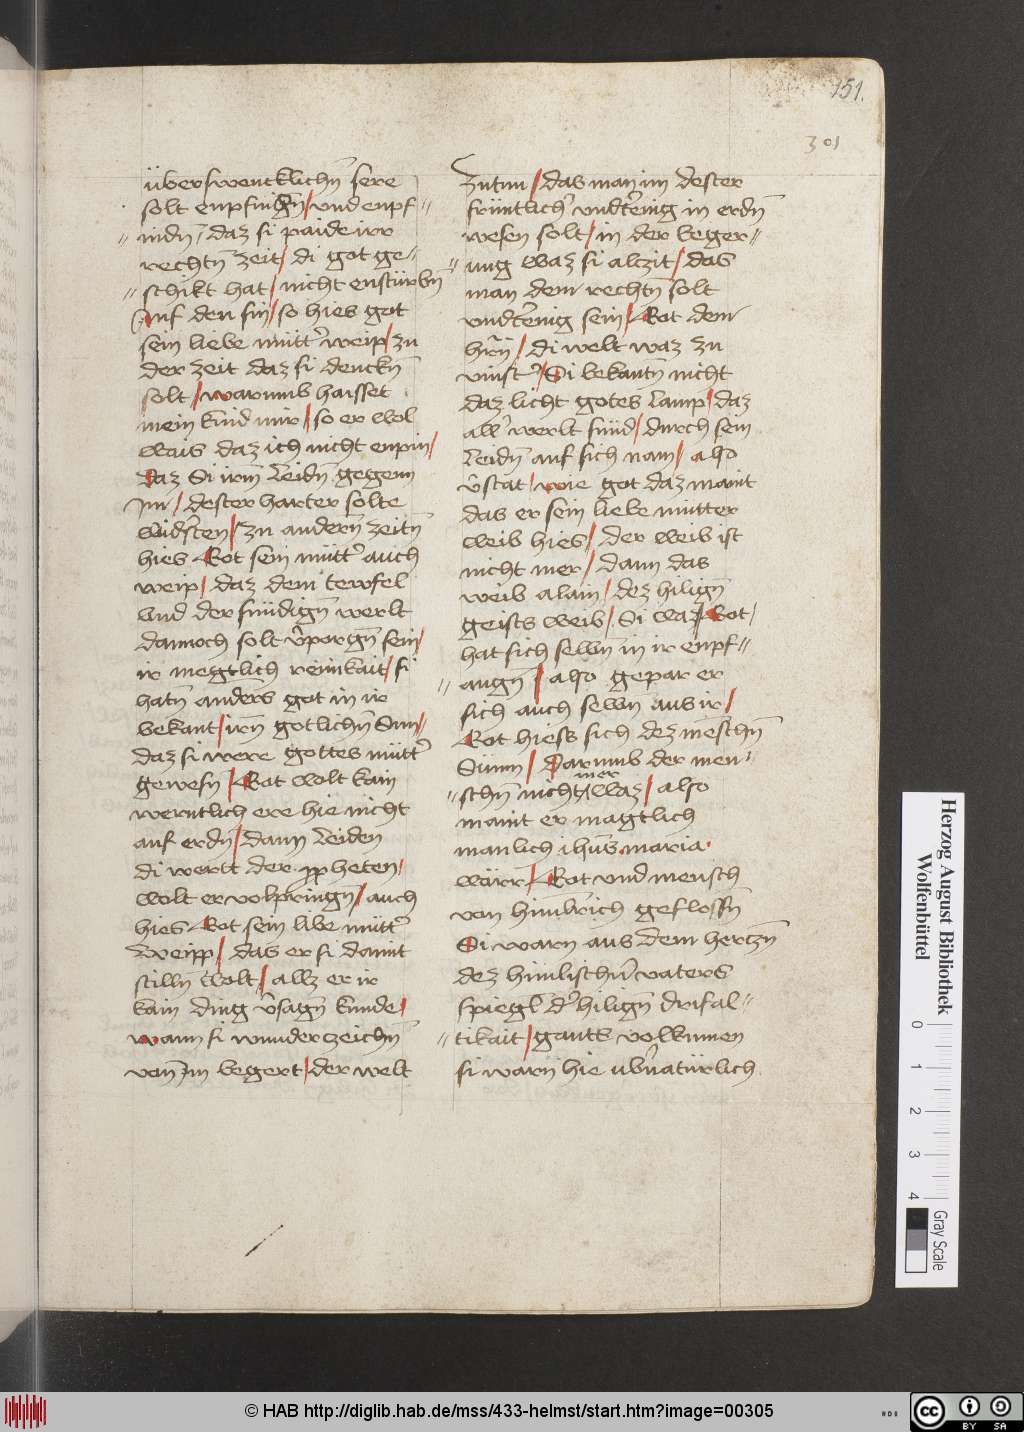 151.
301
überswencklichn̄ sere
solt enpfindn̄/vnd enpf〃
〃indn̄/daz si paide irr
rechtn̄ zeit/di got ge〃
〃schikt hat/nicht enstürbn̄
Auf den sin/so hies got
sein liebe mutt̓ weip/zu
der zeit daz si denckn̄
solt/warumb haisset
mein kind mir/so er wol
wais daz ich nicht enpin/
Daz Si irm̄ leidn̄ gegenn
im/dester harter solte
widsten/zu andern̄ zeitn̄
hies Got sein mutt̓ auch
weip/daz dem tewfel
vnd der sündign̄ werlt
dannoch solt v̓porgn̄ sein/
ir megtlich reinikait/si
hatn̄ anders got in ir
bekant/irn̄ gotlichn̄ Sun/
daz si were gottes mutt̓
gewesn̄/Got wolt kain
werntlich ere hie nicht
auf erdn̄/dann leiden
di wortt der ppheten/
wolt er volpringn̄/auch
hies Got sein libe mutt̓
Weipp/das er si damit
stilln̄ wolt/allz er ir
kain ding v̓sagn̄ kunde/
wann si wunderzeichn̄
von im begert/der welt
Zutun/das man im dester
früntlich̓ vndt̓enig in erdn̄
wesen solt/in der beger〃
〃ung waz si alczit/das
man dem rechtn̄ solt
vndt̓enig sein/Got dem
hr̄n/di welt waz zu
vinst̓/Si bekantn̄ nicht
daz licht gotes lamp/daz
all̓ werlt sund/durch sein
leidn̄ auf sich nam/also
v̓stat/wie got daz maint
das er sein liebe mutter
weib hies/der weib ist
nicht mer/dann das
weib alain/dez hilign̄
geists weib/Si waz/Got/
hat sich selbn̄ in ir enpf〃
〃angn̄/also gepar er
sich auch selbn̄ aus ir/
Got hiess sich dez menschn̄
Sunn/Darumb der men〃
〃schn̄ nicht mer waz/also
maint er magtlich
manlich ihūs maria.
wärr/Got vnd mensch
von himlrich geflossn̄
Si warn aus dem hertzn̄
dez himlischn̄ vaters
spiegl̄ d̓ hilign̄ drifal〃
〃tikait/gantz volkumen
si warn hie vbernatürlich
Herzog August Bibliothek
Wolfenbüttel
0 1 2 3 4
Gray Scale
© HAB http://diglib.hab.de/mss/433-helmst/start.htm?image=00305
HAB
CC BY SA